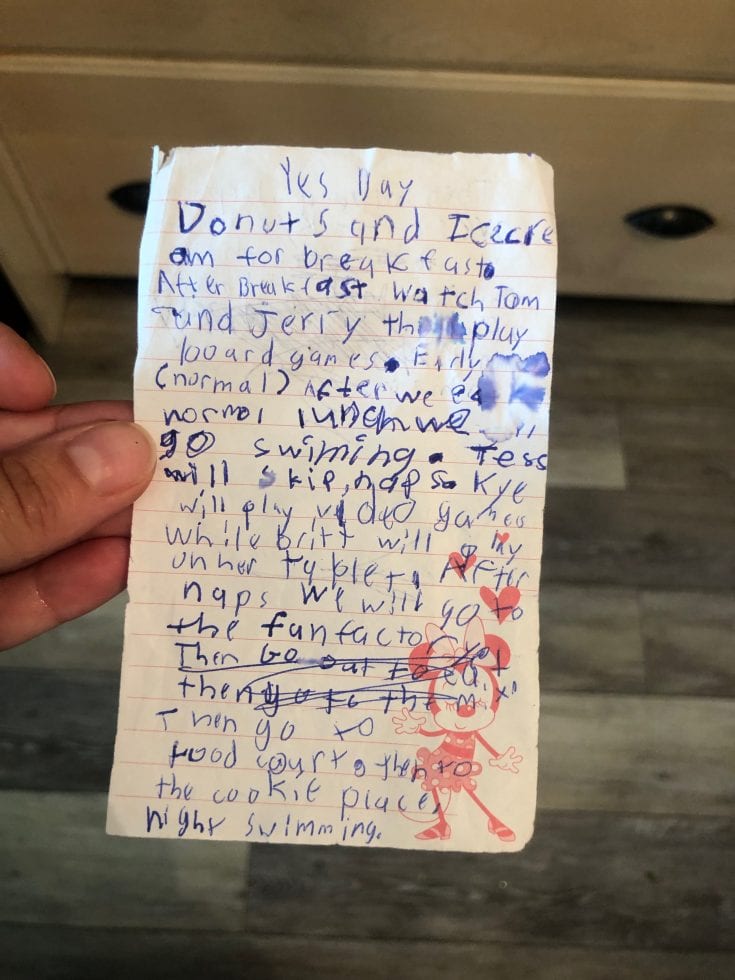 Yes Day
Donuts and Icecre
am for breakfast.
After Breakfast watch Tom
and Jerry then play
board games. Early
(normal) After we ea
normal lunch we
go swiming. Tess
will skip naps. Kye
will play video games
while britt will play
on her tyblet. After
naps we will go to
the fun factory
Then Go out to eat
then go to the
Then go to
food court. then to
the cookie place,
night swimming.